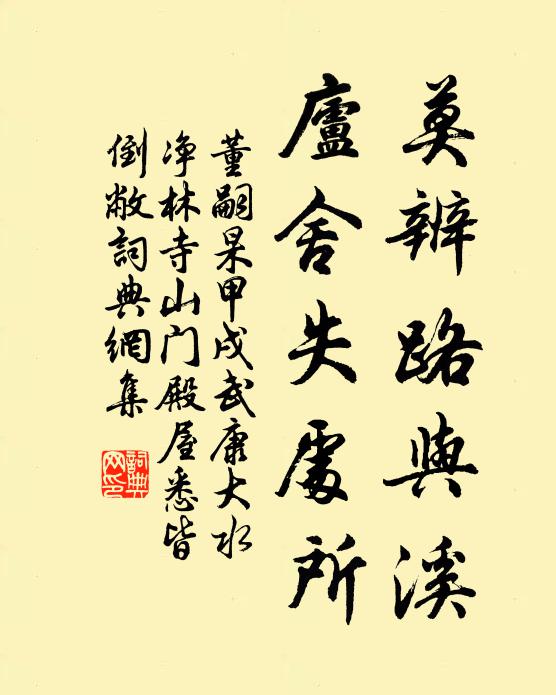 莫辨路與溪
廬舍失處所
董嗣杲甲戌武康大水
净林寺山门殿屋悉皆
倒敝詞典網集
詞典网印